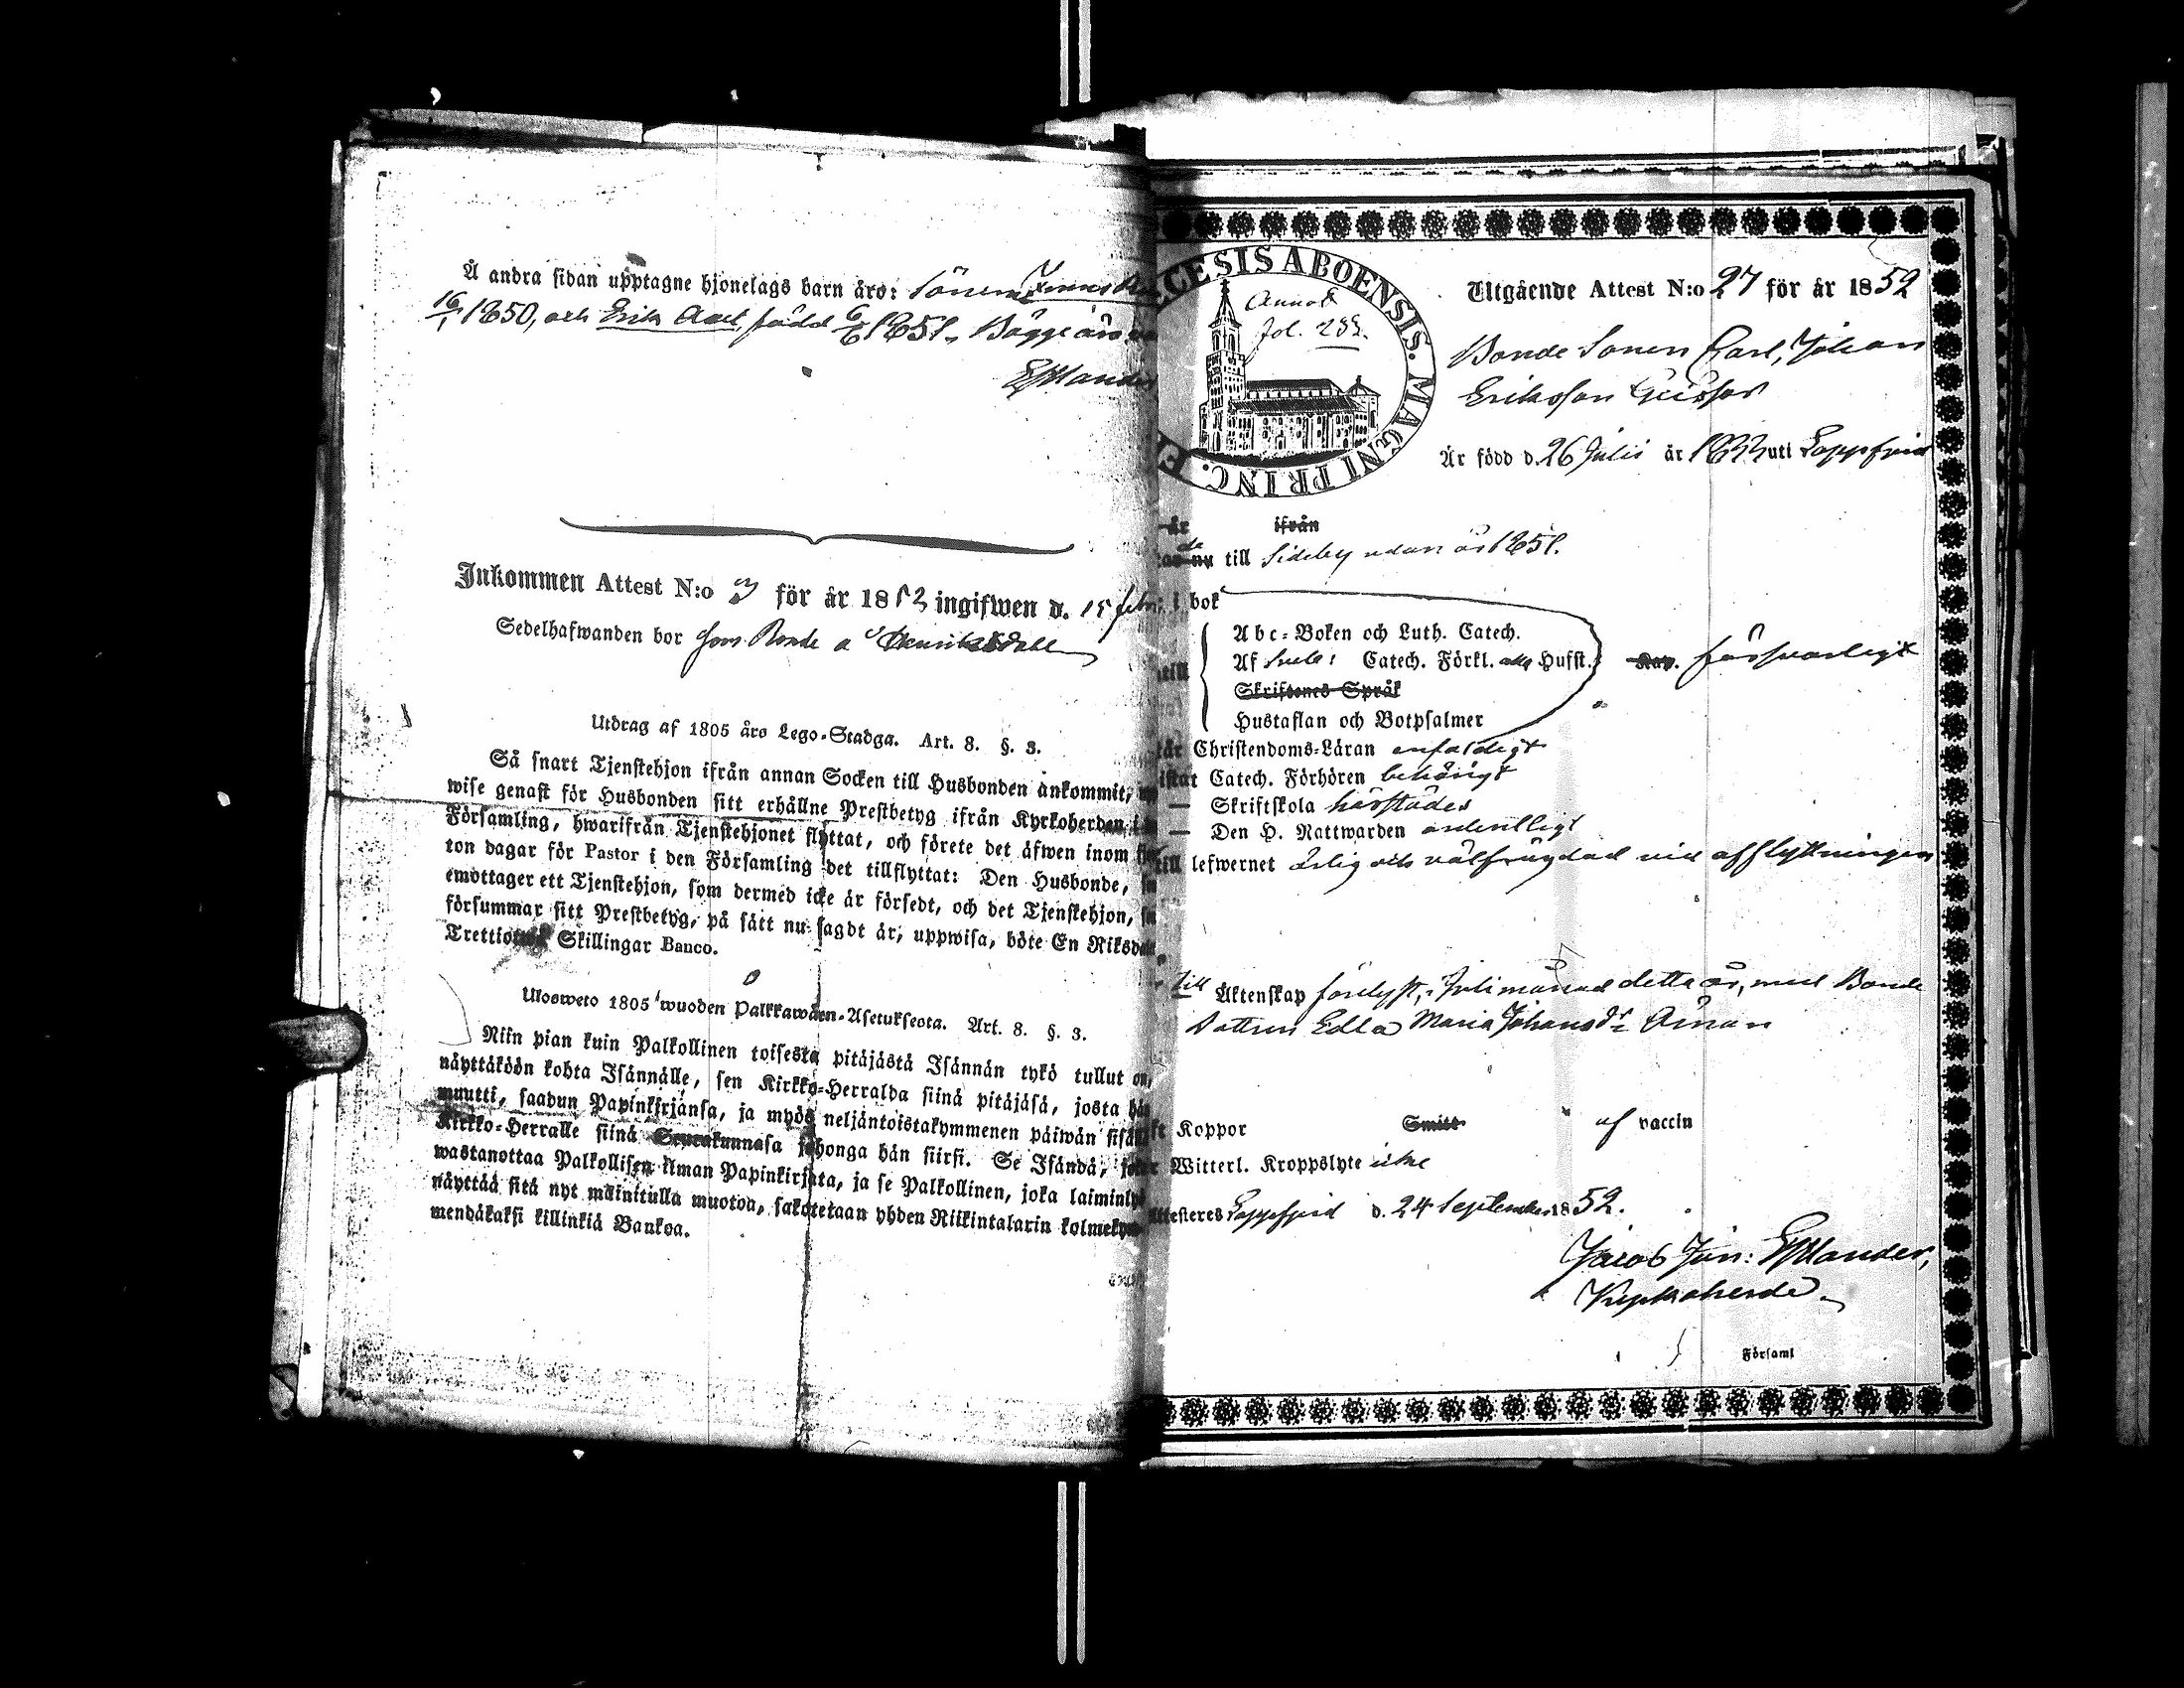 Å andra sidan upptagne hjonelags barn äro: Sönerne
16/1 1850, och Erik Axel, född 6/6 1851. Bägge äro
Inkommen Attest N:o 3 för år 1853 ingifwen d. 15 febr.
Sedelhafwanden bor som Bonde å Henriksdahl
Utdrag af 1805 års Lego-Stadga. Art. 8. §. 3.
Så snart Tjenstehjon ifrån annan Socken till Husbonden ankommit,
wise genast för Husbonden sitt erhållne Prestbetyg ifrån Kyrkoherden i
Församling, hwarifrån Tjenstehjonet flyttat, och förete det äfwen inom
ton dagar för Pastor i den Församling det tillflyttat: Den Husbonde,
emottager ett Tjenstehjon, som dermed icke är försedt, och det Tjenstehjon,
försummar sitt Prestbetyg, på sätt nu sagdt är, uppwisa, böte En Riksdal
Skillingar Banco.
Ulosweto 1805 wuoden Palkkawäen-Asetuksesta. Art. 8. §. 3.
Niin pian kuin Palkollinen toisesta pitäjästä Isännän tykö tullut on,
näyttäköön kohta Isännälle, sen Kirkko-Herralda siinä pitäjäsä, josta hän
muutti, saadun Papinkirjansa, ja myös neljäntoistakymmenen päiwän sisällä
Kirkko-Herralle siinä Seurakunnasa johonga hän siirsi. Se Isändä, joka
wastanottaa Palkollisen ilman Papinkirjata, ja se Palkollinen, joka laiminly
näyttää sitä nyt mainitulla muotoa, sakotetaan yhden Riikintalarin kolmekym
mendäkaksi killinkiä Bankoa.
ECESIS ABOENSIS. MAGNI PRINC. F
Annot
fol. 255.
Utgående Attest N:o 27 för år 1852
Bonde Sonen Carl, Johan
Eriksson
Är född d. 26 Julii år 1833 uti Lappfjerd
år ifrån
de nu till Sideby redan år 1851.
i bok
Abc-Boken och Luth. Catech.
Af Sveb: Catech. Förkl. alla Hufst. Kap. försvarligt
Skriftenes Språk
Hustaflan och Botpsalmer
tår Christendoms-Läran enfaldigt
istat Catech. Förhören behörigt
— Skriftskola härstädes
— Den H. Nattwarden ordentligt
till lefwernet ärlig och välfrägdad vid afflyttningen
till Äktenskap förelyst, i Juli månad detta år, med Bonde
Dottren Edla Maria Johansdr
Koppor Smitt af vaccin
Witterl. Kroppslyte icke
Attesteres Lappfjerd d. 24 September 1852.
Jacob Jun:
Kyrkoherde.
Församl